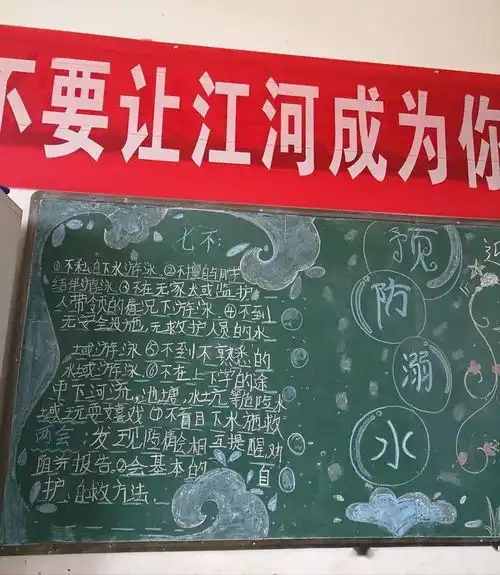 不要让江河成为你
七不:
①不私自下水游泳 ②不擅自与同学
结伴游泳 ③不在无家长或监护
人带领的情况下游泳 ④不到
无安全设施,无救护人员的水
域游泳 ⑤不到不熟悉的
水域游泳 ⑥不在上下学的途
中下河流,池塘,水坑等危险水
域玩耍嬉戏 ⑦不盲目下水施救
两会:发现险情会相互提醒,劝
阻并报告.②会基本的 自
护、自救方法.
预
防
溺
水